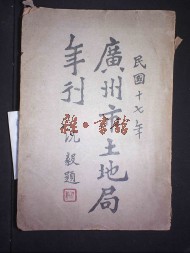 民國十七年
廣州市土地局
年刊
沈毅題